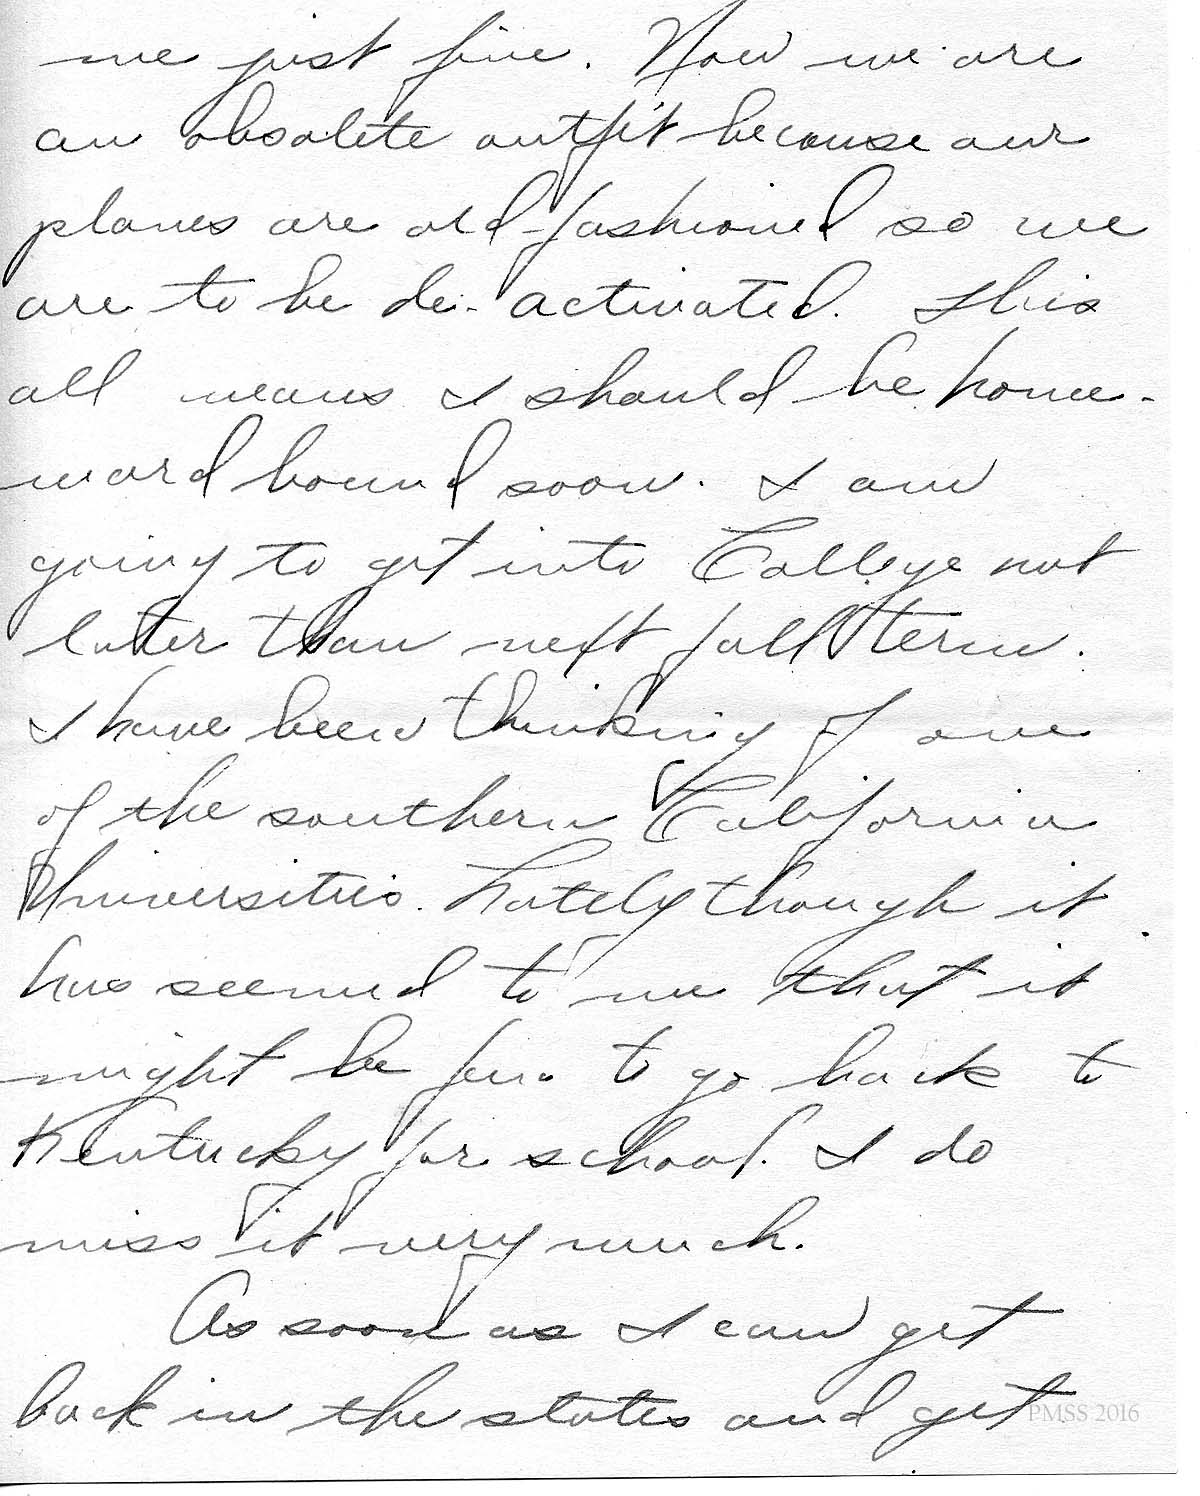 me just fine. Now we are
an obsolete outfit because our
planes are old-fashioned so we
are to be de-activated. This
all means I should be home-
ward bound soon. I am
going to get into College not
later than next fall term.
I have been thinking of one
of the southern California
Universities. Lately though it
has seemed to me that it
might be fun to go back to
Kentucky for school. I do
miss it very much.
As soon as I can get
back in the states and get
PMSS 2016